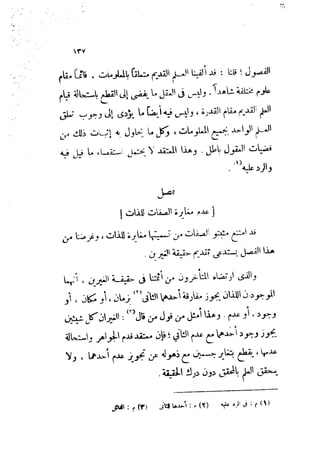 ١٣٧
الفصول ؛ قلنا : قد ألفينا العلم القديم متعلقاً بالمعلومات ، قائماً مقام
علوم مختلفة شاهداً . وليس فى العقل ما يفضى إلى القطع باستحالة قيام
العلم القديم مقام القدرة ، وليس فيه أيضاً ما يؤدى إلى وجوب تعلق
العلم الواحد بجميع المعلومات ، وكل ما يحاول به إثبات ذلك من
قضيات العقول باطل . وهذا المعتقد لا يحتمل استقصاء ما قيل فيه
والرد عليه (١) .
فصل
[ عدم مغايرة الصفات للذات ]
قد امتنع مثبتو الصفات من تسميتها مغايرة للذات ، وغرضنا من
هذا الفصل يستدعى تقديم حقيقة الغيرين .
والذى ارتضاه المتأخرون من أئمتنا فى حقيقة الغيرين ، أنهما
الموجودان اللذان يجوز مفارقة أحدهما الثانى (٢) بزمان ، أو مكان ، أو
وجود ، أو عدم . وهذا أمثل من قول من قال (٣) : الغيران كل شيئين
يجوز وجود أحدهما مع عدم الثانى ؛ فإن معتقد قدم الجواهر واستحالة
عدمها ، يقطع بتغاير جسمين مع ذهوله عن تجويز عدم أحدهما ، ولا
يتحقق العلم بالمحقق دون درك الحقيقة .
(١) م : فى الرد عليه (٢) م : أحدهما للثانى (٣) م : القائل